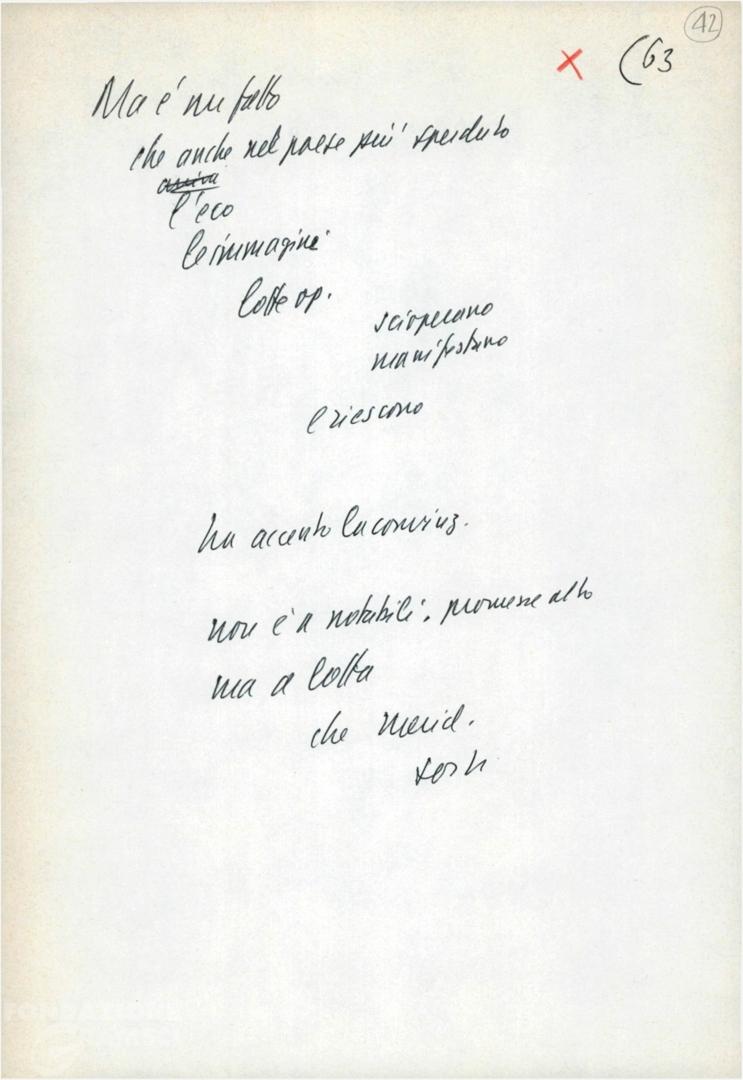 42
x (63
Ma è un fatto
che anche nel paese più sperduto
arriva
l'eco
le immagini
lotte op.
scioperano
manifestano
e riescono
ha accento la convinz.
non è a notabili, promesse alto
ma a lotta
che merid.
sorti
FONDAZIONE